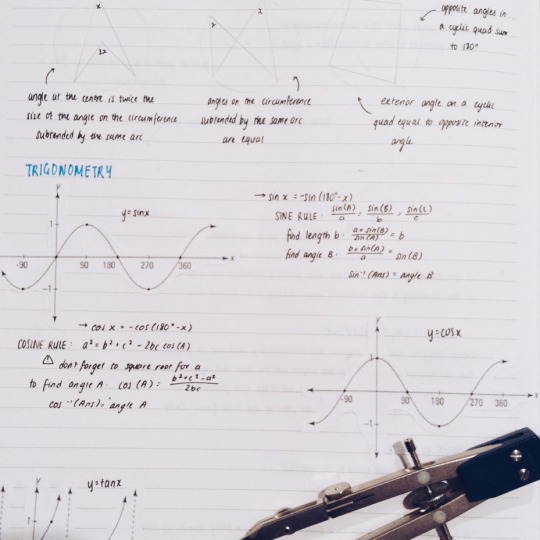 x
2x
y
x
opposite angles in
a cyclic quad sum
to 180°
angle at the centre is twice the
size of the angle on the circumference
subtended by the same arc
angles on the circumference
subtended by the same arc
are equal
exterior angle on a cyclic
quad equal to opposite interior
angle
TRIGONOMETRY
y
y=sinx
1
-90 90 180 270 360 x
-1
→ sin x = -sin (180°-x)
SINE RULE: sin(A)/a = sin(B)/b = sin(C)/c
find length b: a×sin(B)/sin(A) = b
find angle B: b×sin(A)/a = sin(B)
sin⁻¹(Ans) = angle B
→ cos x = -cos (180°-x)
COSINE RULE: a² = b² + c² - 2bc cos(A)
⚠ don't forget to square root for a
to find angle A: cos(A) = b²+c²-a²/2bc
cos⁻¹(Ans) = angle A
y
y=cosx
1
-90 90 180 270 360 x
-1
y
y=tanx
1